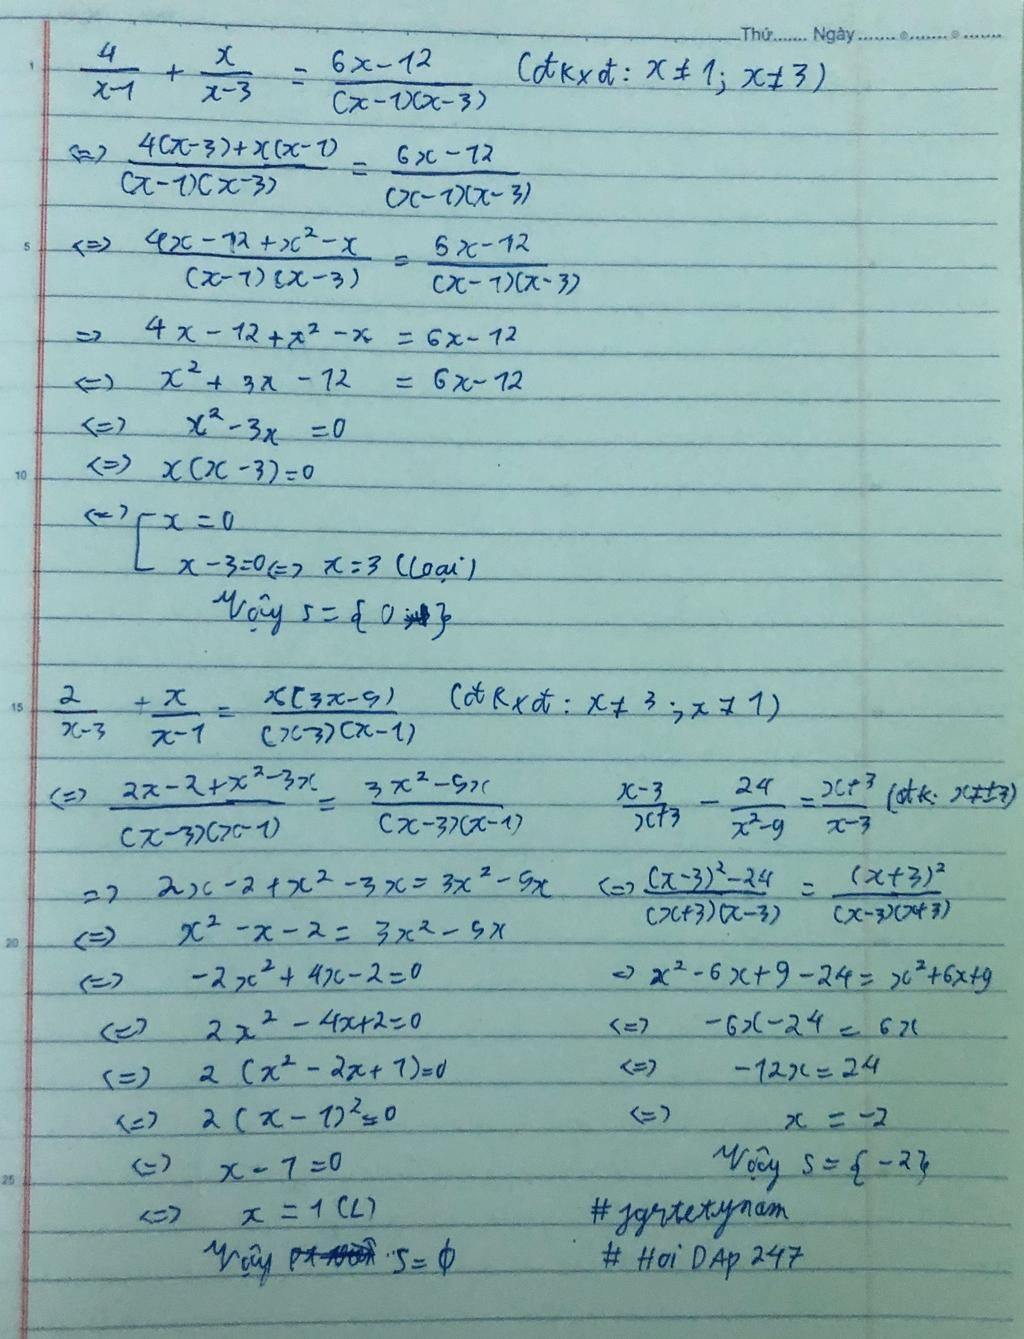 Thứ....... Ngày.......
4/(x-1) + x/(x-3) = (6x-12)/((x-1)(x-3)) (đkxđ: x≠1; x≠3)
<=> (4(x-3)+x(x-1))/((x-1)(x-3)) = (6x-12)/((x-1)(x-3))
5
<=> (4x-12+x²-x)/((x-1)(x-3)) = (6x-12)/((x-1)(x-3))
=> 4x-12+x²-x = 6x-12
<=> x²+3x-12 = 6x-12
<=> x²-3x =0
10
<=> x(x-3)=0
<=> [ x=0
x-3=0 <=> x=3 (loại)
Vậy S={0}
15
2/(x-3) + x/(x-1) = x(3x-5)/((x-3)(x-1)) (đkxđ: x≠3; x≠1)
<=> (2x-2+x²-3x)/((x-3)(x-1)) = (3x²-5x)/((x-3)(x-1))
=> 2x-2+x²-3x=3x²-5x
20
<=> x²-x-2=3x²-5x
<=> -2x²+4x-2=0
<=> 2x²-4x+2=0
<=> 2(x²-2x+1)=0
<=> 2(x-1)²=0
25
<=> x-1=0
<=> x=1(L)
Vậy S=ϕ
(x-3)/(x+3) - 24/(x²-9) = (x+3)/(x-3) (đk: x≠±3)
<=> ((x-3)²-24)/((x+3)(x-3)) = (x+3)²/((x-3)(x+3))
=> x²-6x+9-24=x²+6x+9
<=> -6x-24=6x
<=> -12x=24
<=> x=-2
Vậy S={-2}
# Hoi DAp 247